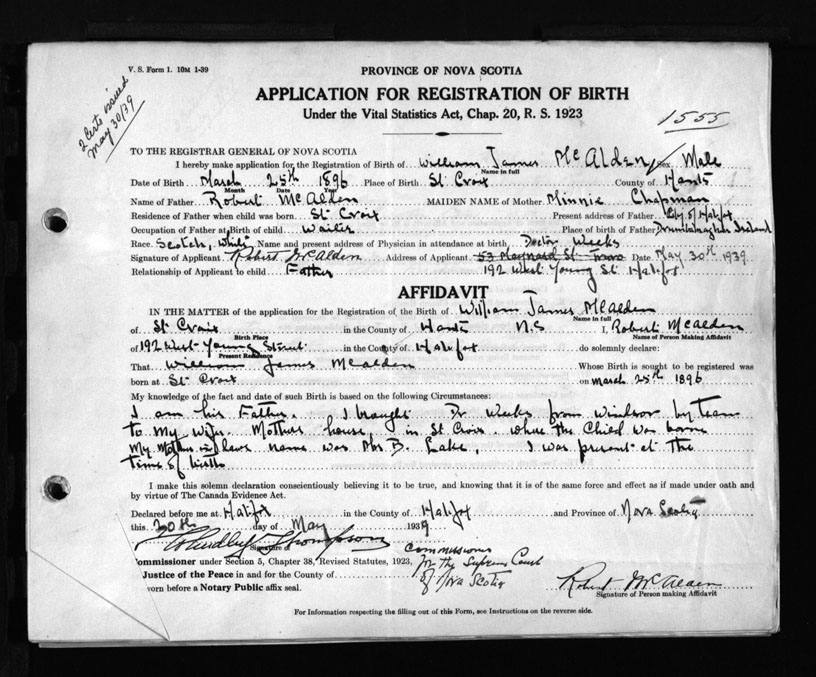 V. S. Form 1. 10M 1-39
2 Certs issued
May 30/39
PROVINCE OF NOVA SCOTIA
APPLICATION FOR REGISTRATION OF BIRTH
Under the Vital Statistics Act, Chap. 20, R. S. 1923
1555
TO THE REGISTRAR GENERAL OF NOVA SCOTIA
I hereby make application for the Registration of Birth of William James McAlden Sex Male
Name in full
Date of Birth March 25th 1896 Place of Birth St Croix County of Hants
Month Date Year
Name of Father Robert McAlden MAIDEN NAME of Mother Minnie Chapman
Residence of Father when child was born St Croix Present address of Father City of Halifax
Occupation of Father at Birth of child Waiter Place of birth of Father Ireland
Race Scotch, White Name and present address of Physician in attendance at birth Doctor Weeks
Signature of Applicant Robert McAlden Address of Applicant 53 Maynard St Date May 30th 1939
Relationship of Applicant to child Father 192 West Young St Halifax
AFFIDAVIT
IN THE MATTER of the application of the Registration of the Birth of William James McAlden
Name in full
of St Croix in the County of Hants N.S I, Robert McAlden
Birth Place Name of Person Making Affidavit
of 192 West Young Street in the County of Halifax do solemnly declare:
Present Residence
That William James McAlden Whose Birth is sought to be registered was
born at St Croix on March 25th 1896
My knowledge of the fact and date of such Birth is based on the following Circumstances:
I am his Father. I brought Dr Weeks from Windsor by team
to my wifes Mothers house in St Croix. where the Child was born
My Mother in laws name was Mrs B. Lake, I was present at the
time of birth
I make this solemn declaration conscientiously believing it to be true, and knowing that it is of the same force and effect as if made under oath and
by virtue of The Canada Evidence Act.
Declared before me at Halifax in the County of Halifax and Province of Nova Scotia
this 30th day of May 1939
Thompson
Signature of
Commissioner
for the Supreme Court
of Nova Scotia
ommissioner under Section 5, Chapter 38, Revised Statutes, 1923,
Justice of the Peace in and for the County of
worn before a Notary Public affix seal.
Robert McAlden
Signature of Person making Affidavit
For Information respecting the filling out of this Form, see Instructions on the reverse side.